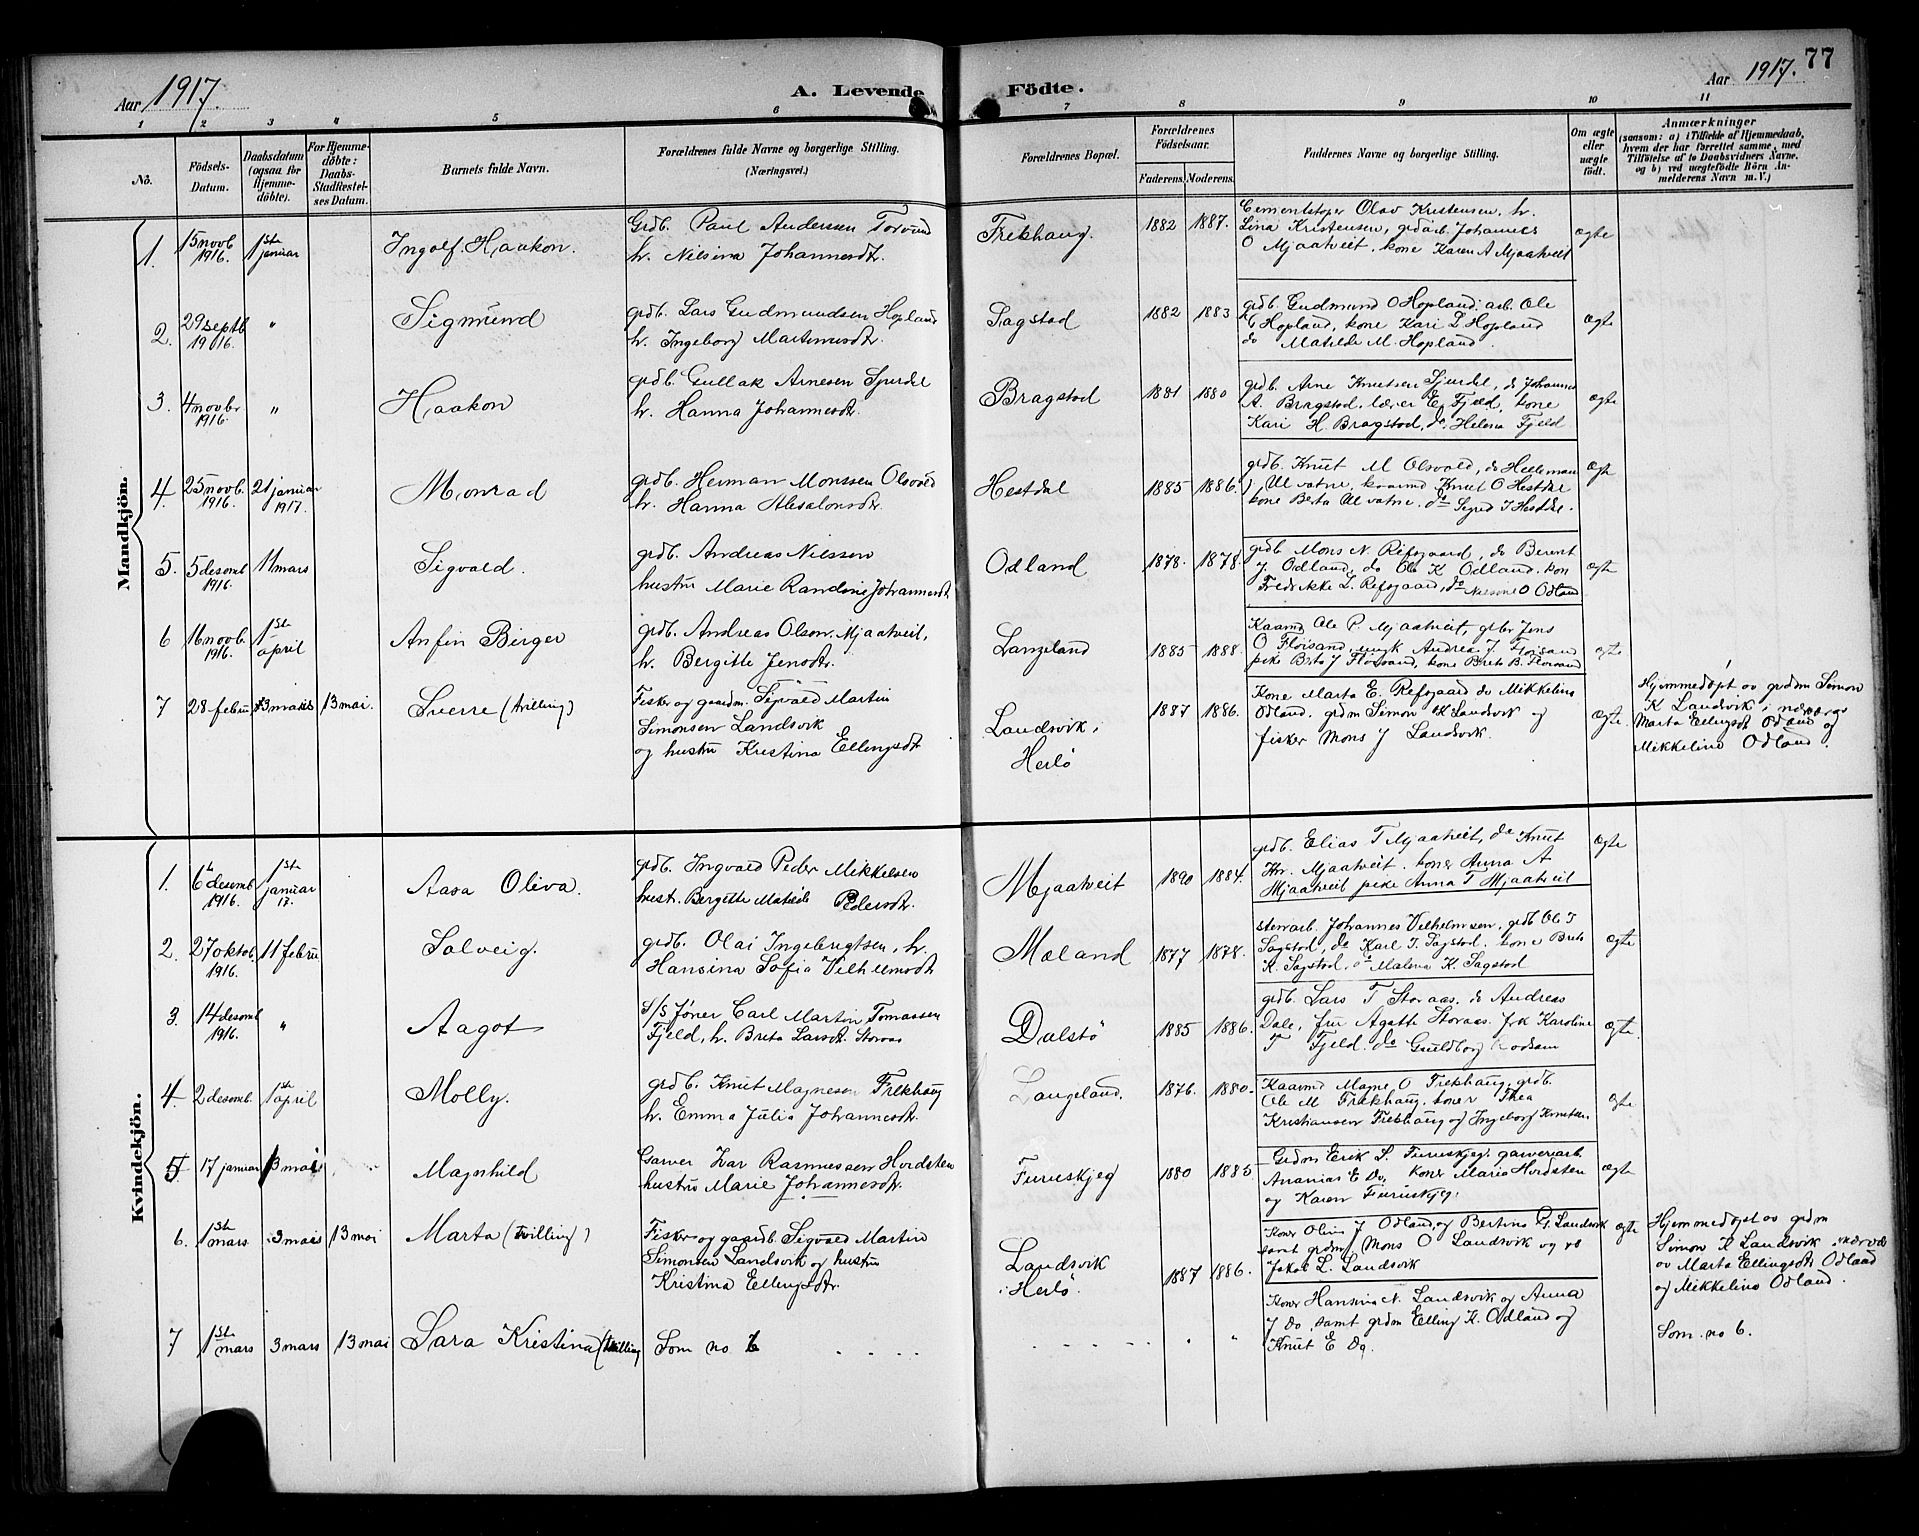 Aar 1917.
A. Levende Födte.
Aar 1917. 77
1 2 3 4 5 6 7 8 9 10 11
No.
Födsels-Datum.
Daabsdatum (ogsaa for Hjemme-döbte).
For Hjemme-döbte: Daabs-Stadfæstel-ses Datum.
Barnets fulde Navn.
Forældrenes fulde Navne og borgerlige Stilling.
(Næringsvei.)
Forældrenes Bopæl.
Forældrenes Födselsaar.
Faderens. Moderens.
Faddernes Navne og borgerlige Stilling.
Om ægte eller uægte födt.
Anmærkninger
(saasom: a) i Tilfælde af Hjemmedaab,
hvem der har forrettet samme, med
Tilföielse af to Daabsvidners Navne.
og b) ved uægtefödte Börn An-
melderens Navn m. V.)
Mandkjön.
1. 15 novb. 1916. 1ste januar Ingolf Haakon.
Grdb. Paul Andersen
h. Nilsina Johannesdtr.
Frekhaug. 1882 1887.
Cementstøper Olav Kristensen, h.
Lina Kristensen, grdarb. Johannes
O Mjaatveit, kone Karen A Mjaatveit
ægte
2. 29 septb. 1916. " Sigmund
grdb. Lars Gudmundsen Hopland
h. Ingeborg Martinusdtr.
Sagstad 1882 1883
grdb. Gudmund O Hopland. arb. Ole
Hopland, kone Kari L Hopland
do Matilde M. Hopland.
ægte
3. 4 novbr 1916. " Haakon
grdb. Gullak Arnesen Sjurdel
h. Hanna Johannesdtr.
Bragstad 1881 1880
grdb. Arne Knutsen Sjurdel, do Johannes
A. Bragstad, lærer E. Fjeld, kone
Kari H. Bragstad, do. Helena Fjeld
ægte
4. 25 novb. 1916. 21 januar 1917. Monrad
grdb. Herman Monssen Olsvold
h. Hanna Absalonsdtr.
Hestdal 1885 1886.
grdb. Knut M Olsvold, do Helleman
J Ulvatne, kaarmd Knut O Hestdal
kone Berta Ulvatne. do Sigrid J Hestdal.
ægte
5. 5 desemb 1916. 11 mars Sigvald.
grdb. Andreas Nilssen
hustru Marie Randine Johannesdtr
Odland 1878. 1878.
grdb Mons N. Refsgaard, do Berent
J Odland, do Ole K Odland. kon
Fredrikke L. Refsgaard, do Nilsine O Odland
ægte
6 16 novb. 1916. 1ste april Anfin Birger
grdb. Andreas Olson Mjaatveit,
h. Bergitte Jensdtr.
Langeland 1885 1888.
Kaarmd Ole P. Mjaatveit, grbr Jens
O Floisand, ungk Andrea J. Floisand
pike Brita J Floisand, kone Brita B. Floisand
ægte
7 28 februar 3 mars 13 mai. Sverre (trilling)
Fisker og gaardm. Sigvald Martin
Simonsen Landsvik
og hustru Kristina Ellingsdtr.
Landsvik i
Herlö
1887 1886.
Kone Marta E. Refsgaard do Mikkeline
Odland. grdm Simon K Landsvik og
fisker Mons J Landsvik.
ægte.
Hjemmedøpt av grdm Simon
K Landvik i nærvær av
Marta Ellingsdt Odland og
Mikkeline Odland.
Kvindekjön.
1. 6 desemb 1916. 1ste januar 17. Aasa Oliva.
grdb. Ingvald Peder Mikkelsen
hust. Bergitte Matilde Pedersdtr.
Mjaatveit 1890 1884.
grdb. Elias T Mjaatveit, do Knut
Hr. Mjaatveit. koner Anna A
Mjaatveit pike Anna T Mjaatveit
ægte
2. 27 oktob. 1916. 11 februar Solveig.
grdb. Olai Ingebrigtsen, h.
Hansina Sofia Vilhelmsdtr
Mæland 1877 1878.
stenarb. Johannes Vilhelmsen, grdb Ole T
Sagstad, do Karl T. Sagstad. kone Brita
K. Sagstad, do Malena K. Sagstad
ægte
3. 14 desemb 1916. " Aagot
Carl Martin Tomassen
Fjeld, h. Brita Larsdt. Storaas
Dalstö 1885 1886.
grdb. Lars T Storaas. do Andreas
Dale, fru Agatte Storaas. frk Karoline
T Fjeld. do Guldborg
ægte
4. 2 desemb. 1ste april Molly.
grdb. Knut Magnesen Frekhaug
h. Emma Julia Johannesdtr.
Langeland. 1876. 1880.
Kaarmd Magne O Frekhaug, grdb.
Ole M Frekhaug. koner Thea
Kristiansen Frekhaug og Ingeborg Knutsen
ægte
5 17 januar 3 mai Magnhild
Garver Ivar Rasmussen Hordsten
hustru Marie Johannesdtr.
Furuskjeg 1880 1885
Grdm Erik S. Furuskjeg. garveriarb.
Ananias E Do, koner Maria Hordsten
og Karen Furuskjeg.
ægte
6. 1ste mars 3 mars 13 mai Marta (Trilling)
Fisker og gaardb Sigvald Martin
Simonsen Landsvik og hustru
Kristina Ellingsdtr.
Landsvik
i Herlö.
1887 1886.
Koner Oline J Odland, og Bertine Landsvik
samt grdm Mons O Landsvik og
Jakob L. Landsvik
ægte
Hjemmedøpt av grdm
Simon K Landsvik i nærvær
av Marta Ellingsdtr Odland
og Mikkeline Odland.
7 1ste mars 3 mars 13 mai Sara Kristina (trilling)
Som no 6 . . . .
Koner Hansina N. Landsvik og Anna
J Do, samt grdm Elling K. Odland og
Knut E Do.
Som no 6.